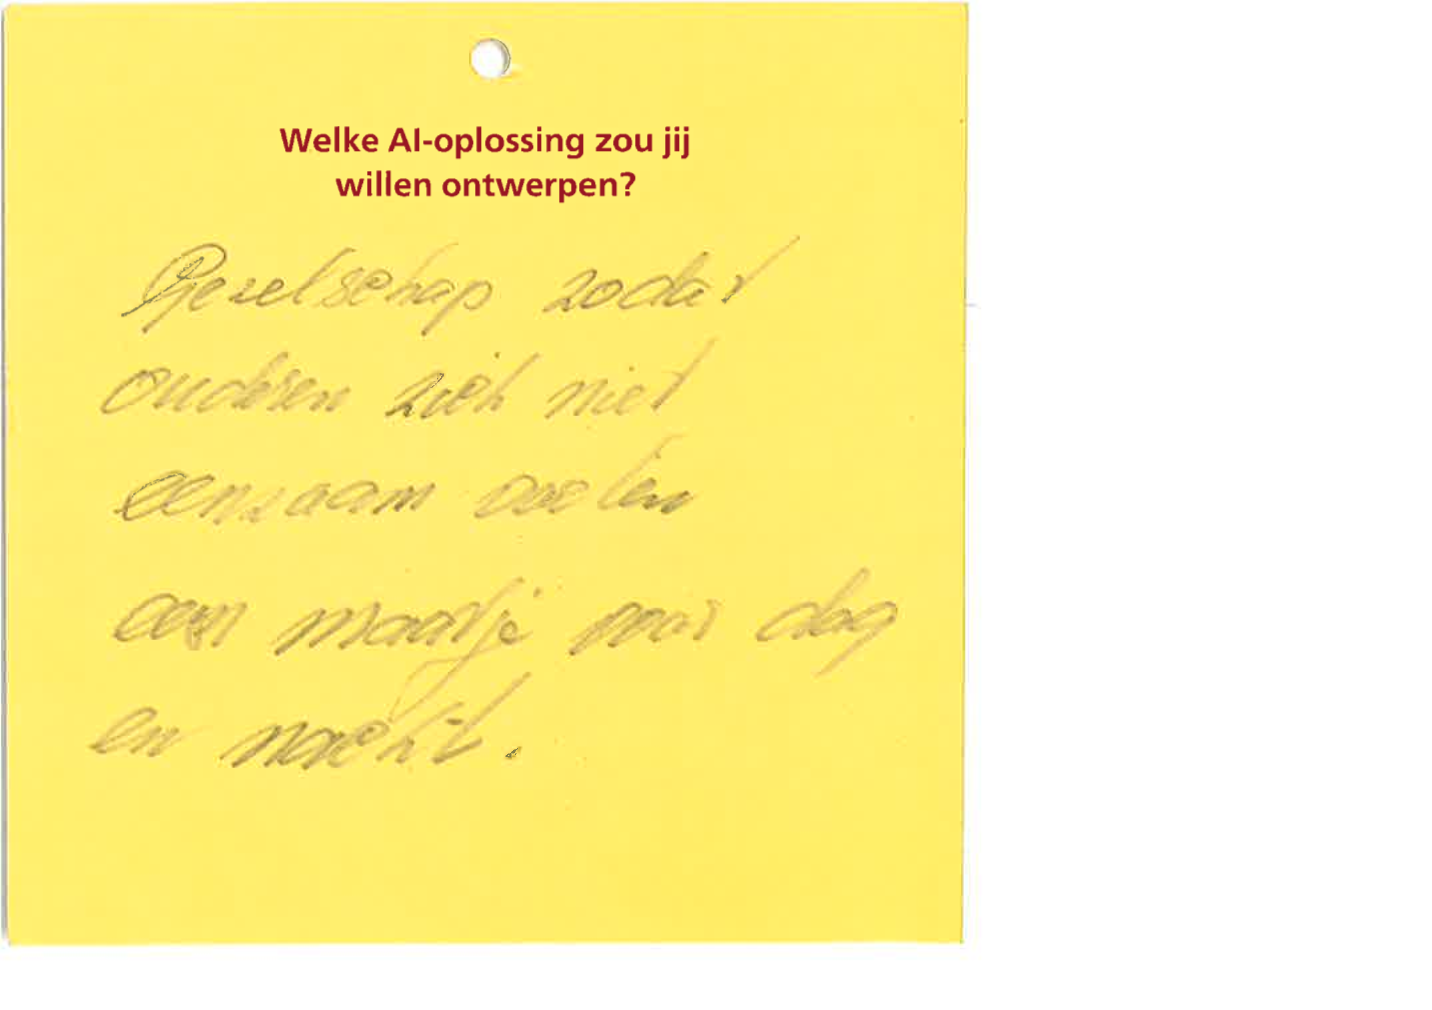 Welke AI-oplossing zou jij
willen ontwerpen?
Gezelschap zodat
ouderen zich niet
eenzaam voelen
een maatje voor dag
en nacht.